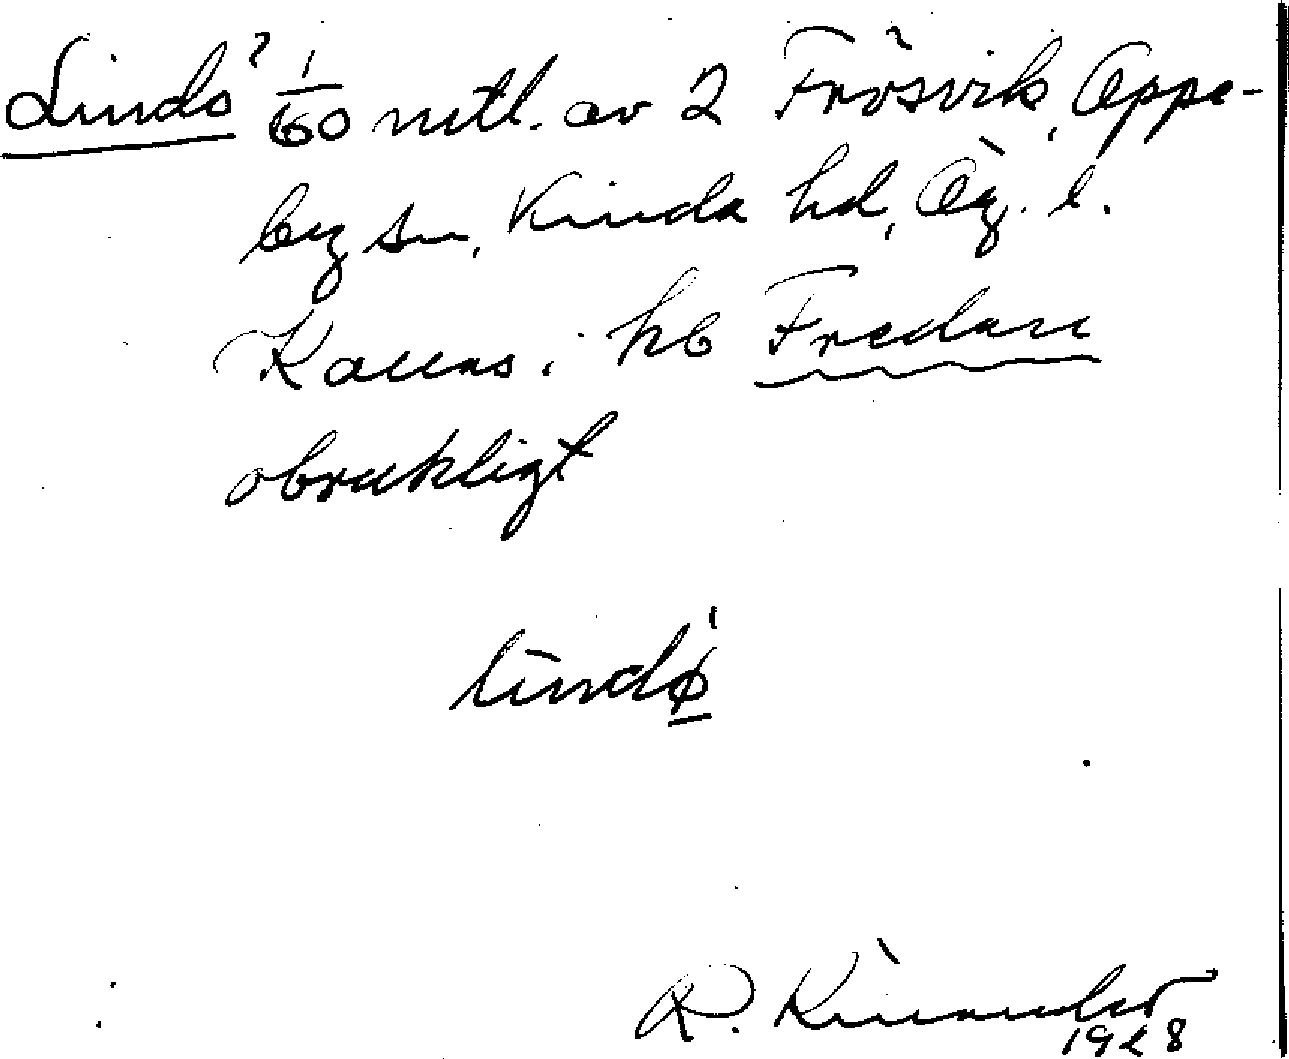 Lindö 1/60 mtl. av 2 Frösvik, Oppe-
by sn, Kinda hd, Ög. l.
Kallas i hb Fredare
obrukligt
lindø
R. Kinander
1928